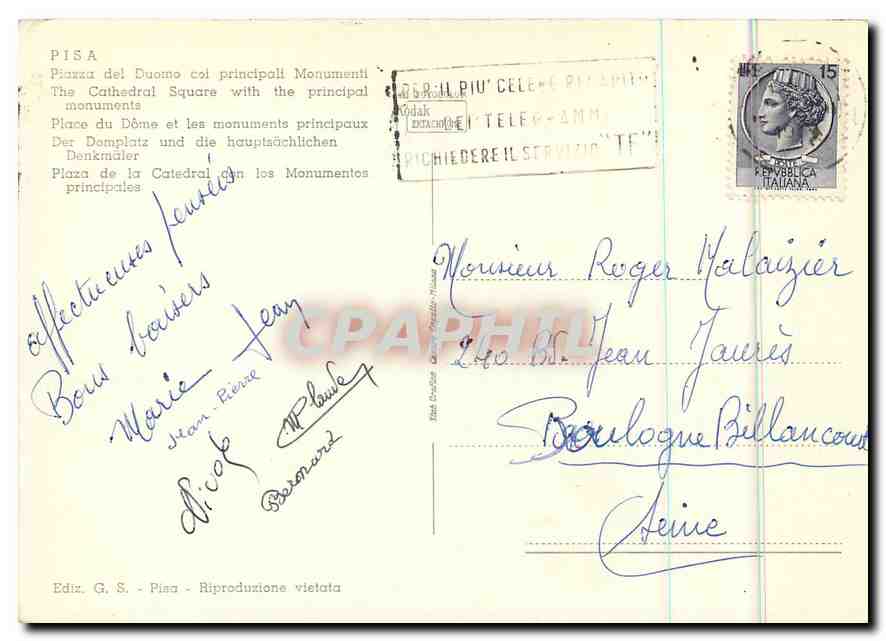 PISA
Piazza del Duomo coi principali Monumenti
The Cathedral Square with the principal
monuments
Place du Dôme et les monuments principaux
Der Domplatz und die hauptsächlichen
Denkmäler
Plaza de la Catedral con los Monumentos
principales
PER IL PIU' CELERE RECAPITO
DEI TELEGRAMMI
RICHIEDERE IL SERVIZIO "TF"
Kodak
EKTACHROME
LIRE 15
POSTE
REPVBBLICA
ITALIANA
Affectueuses pensées
Bons baisers
Marie Jean
Jean-Pierre
Nicole
Bernard
Monsieur Roger Malaizier
270 Bd. Jean Jaurès
Boulogne Billancourt
Seine
CPAPHIL
Ediz. G. S. - Pisa - Riproduzione vietata